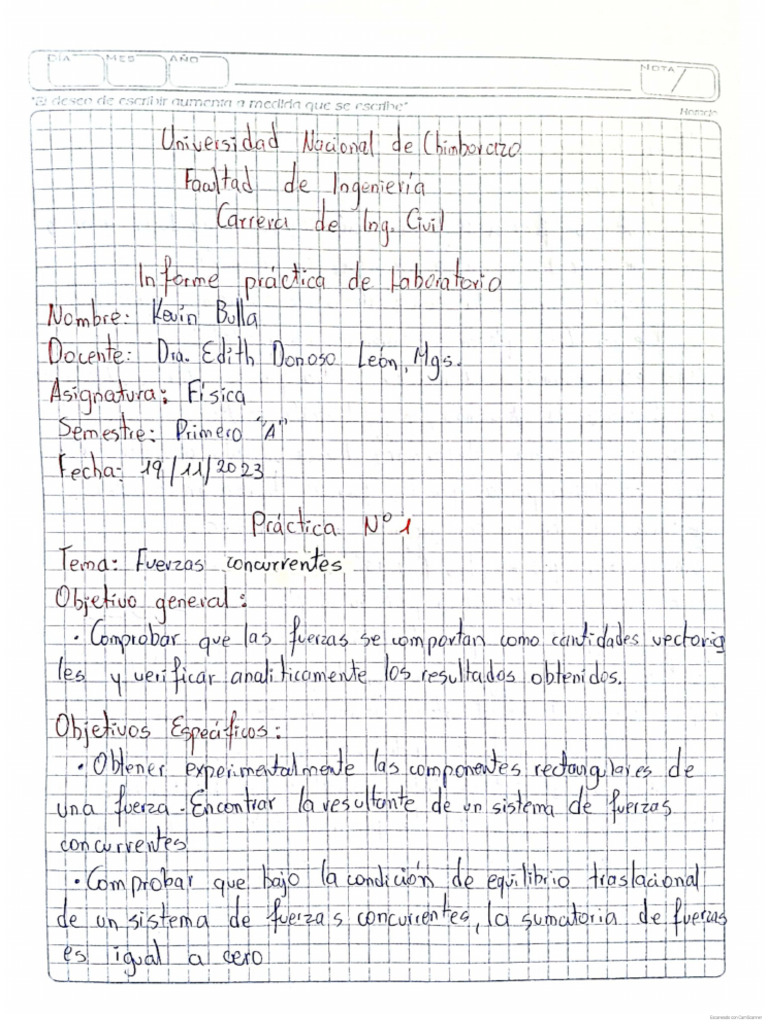 DÍA MES AÑO NOTA
"El deseo de escribir aumenta a medida que se escribe"
Universidad Nacional de Chimborazo
Facultad de Ingeniería
Carrera de Ing. Civil
Informe práctica de Laboratorio
Nombre: Kevin Bulla
Docente: Dra. Edith Donoso León, Mgs.
Asignatura: Física
Semestre: Primero "A"
Fecha: 19/11/2023
Práctica Nº 1
Tema: Fuerzas concurrentes
Objetivo general:
· Comprobar que las fuerzas se comportan como cantidades vectoria
les y verificar analíticamente los resultados obtenidos.
Objetivos Específicos:
· Obtener experimentalmente las componentes rectangulares de
una fuerza. Encontrar la resultante de un sistema de fuerzas
concurrentes
· Comprobar que bajo la condición de equilibrio traslacional
de un sistema de fuerzas concurrentes, la sumatoria de fuerzas
es igual a cero
Escaneado con CamScanner